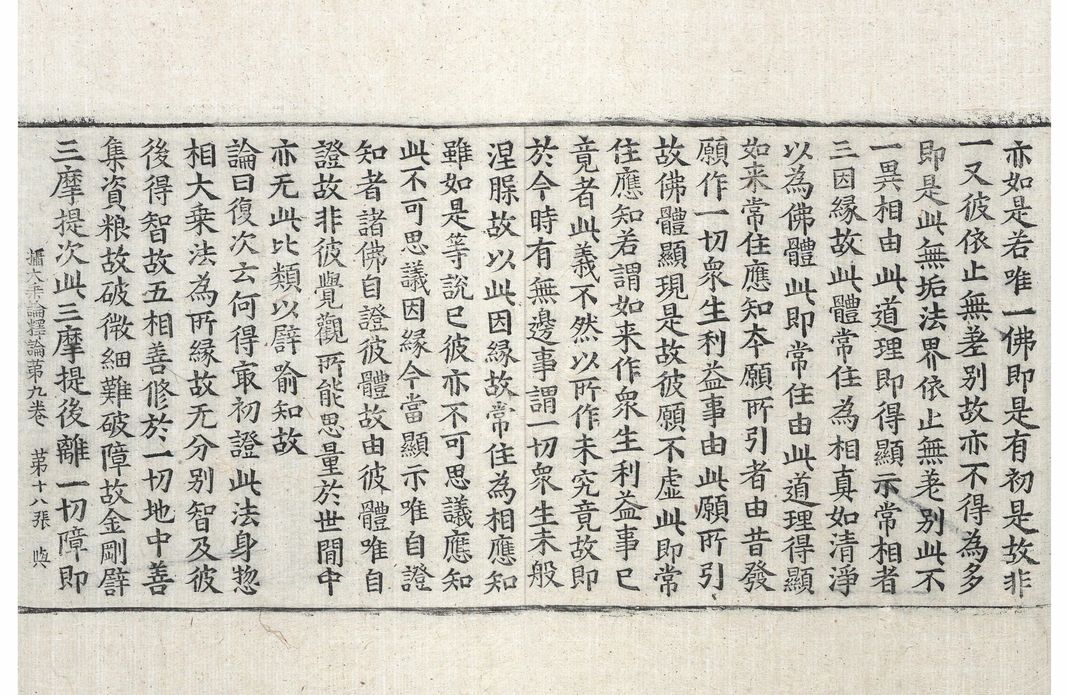 亦如是若唯一佛即是有初是故非
一又彼依止無差別故亦不得為多
即是此無垢法界依止無差別此不
一異相由此道理即得顯示常相者
三因緣故此體常住為相真如清淨
以為佛體此即常住由此道理得顯
如来常住應知夲願所引者由昔發
願作一切衆生利益事由此願所引
故佛體顯現是故彼願不虛此即常
住應知若謂如来作衆生利益事已
竟者此義不然以所作未究竟故即
於今時有無邊事謂一切衆生未般
涅脲故以此因緣故常住為相應知
雖如是等說已彼亦不可思議應知
此不可思議因緣今當顯示唯自證
知者諸佛自證彼體故由彼體唯自
證故非彼覺觀所能思量於世間中
亦无此比類以譬喻知故
論曰復次云何得㝡初證此法身惣
相大乗法為所緣故无分別智及彼
後得智故五相善修於一切地中善
集資粮故破微細難破障故金剛譬
三摩提次此三摩提後離一切障即
攝大乗論釋論第九卷 第十八張 㒜